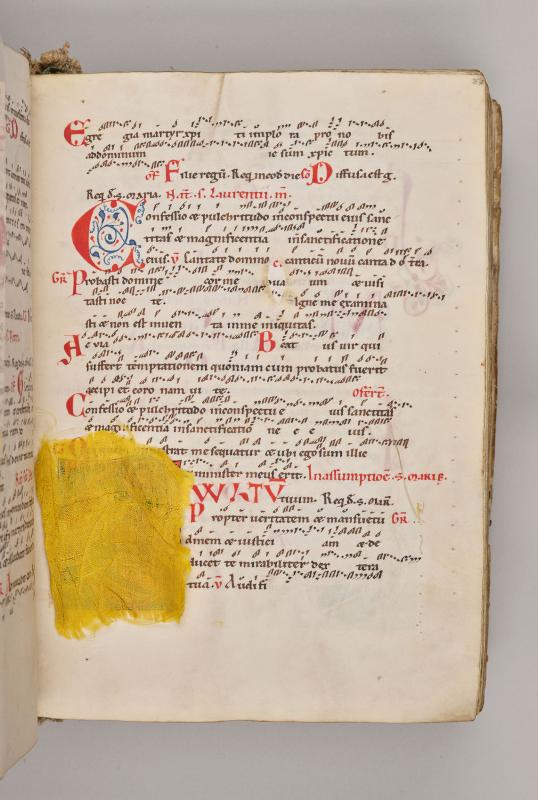 Egre gia martyr xpi ti implo ra pro no bis
addominum ie sum xpic tum.
off Filie regū. Req̄ in cōb die scō Diffusa est g.
Req̄ d. s. maria. Nat̄. s. Laurentii. m̄.
Confessio & pulchritudo in conspectu eius sanc
titas & magnificentia in sanctificatione
eius. v Cantate domino c. canticū nouū cantad o t̄ra.
GR Probasti domine cor me um & uisi
tasti noc te. Igne me examina
sti & non est inuen ta in me iniquitas.
A e uia Beat us uir qui
suffert temptationem quoniam cum probatus fuerit
accipi et coro nam ui te. offert̄.
Confessio & pulchritudo in conspectu e ius sanctitas
& magnificentia in sanctificatio ne e e ius.
strat me sequatur & ubi ego sum illic
minister meus erit. In assumptioē. s. marie.
tuum. Req̄ d. s. mar̄.
Propter ueritatem & mansuetu GR
dinem & iustici am & de
ducet te mirabiliter dex tera
tua. v Audi fi